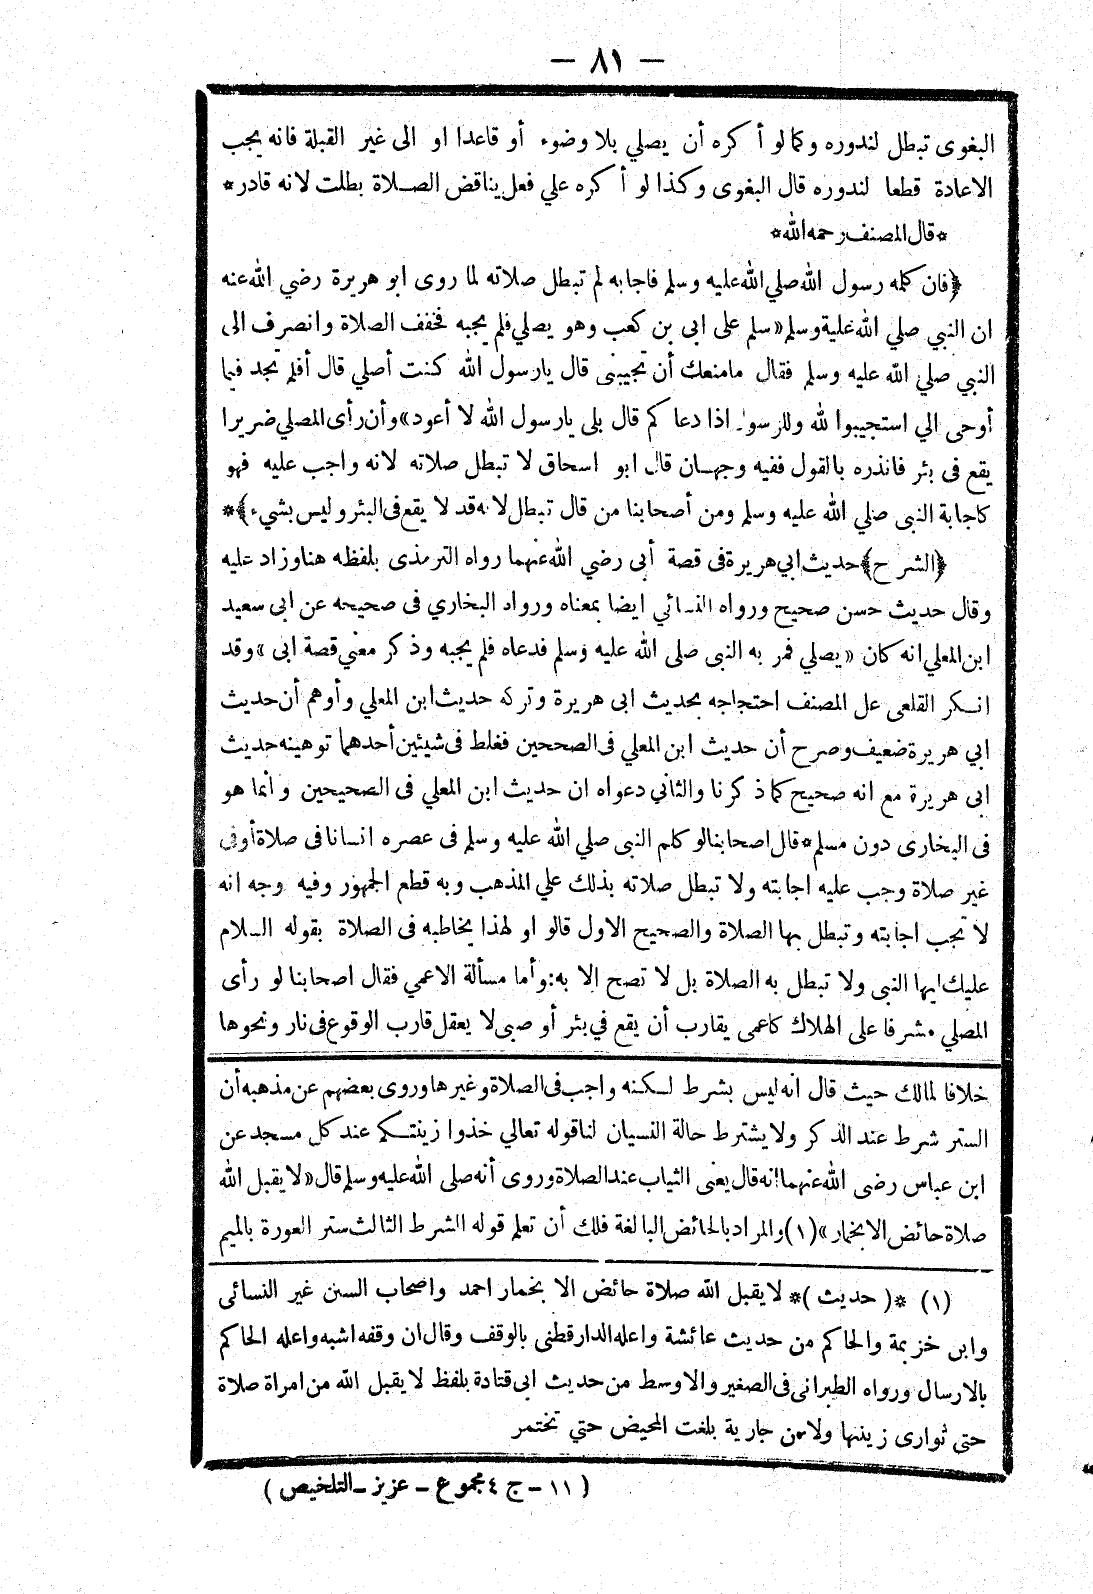 — ٨١ —
البغوى تبطل لندوره وكما لو أكره أن يصلي بلا وضوء أو قاعدا او الى غير القبلة فانه يجب
الاعادة قطعا لندوره قال البغوى وكذا لو أكره علي فعل يناقض الصلاة بطلت لانه قادر*
*قال المصنف رحمه الله*
﴿فان كلمه رسول الله صلي الله عليه وسلم فاجابه لم تبطل صلاته لما روى ابو هريرة رضي الله عنه
ان النبي صلي الله علية وسلم «سلم على ابى بن كعب وهو يصلي فلم يجبه فخفف الصلاة وانصرف الى
النبي صلي الله عليه وسلم فقال مامنعك أن تجيبنى قال يارسول الله كنت أصلي قال أفلم تجد فيما
أوحى الي استجيبوا لله وللرسول اذا دعاكم قال بلى يارسول الله لا أعود» وأن رأى المصلي ضريرا
يقع فى بئر فانذره بالقول ففيه وجهان قال ابو اسحاق لا تبطل صلاته لانه واجب عليه فهو
كاجابة النبى صلي الله عليه وسلم ومن أصحابنا من قال تبطل لانه قد لا يقع فى البئر وليس بشيء﴾*
﴿الشرح﴾ حديث ابي هريرة فى قصة أبى رضي الله عنهما رواه الترمذى بلفظه هنا وزاد عليه
وقال حديث حسن صحيح ورواه النسائي ايضا بمعناه ورواد البخاري فى صحيحه عن ابى سعيد
ابن المعلي انه كان «يصلي فمر به النبى صلى الله عليه وسلم فدعاه فلم يجبه وذكر معنى قصة ابى» وقد
انكر القلعى عل المصنف احتجاجه بحديث ابى هريرة وتركه حديث ابن المعلي وأوهم أن حديث
ابي هريرة ضعيف وصرح أن حديث ابن المعلي فى الصحيحين فغلط فى شيئين أحدهما توهينه حديث
ابى هريرة مع انه صحيح كما ذكرنا والثاني دعواه ان حديث ابن المعلي فى الصحيحين وانما هو
فى البخارى دون مسلم* قال اصحابنا لو كلم النبى صلي الله عليه وسلم فى عصره انسانا فى صلاة أو فى
غير صلاة وجب عليه اجابته ولا تبطل صلاته بذلك علي المذهب وبه قطع الجمهور وفيه وجه انه
لا تجب اجابته وتبطل بها الصلاة والصحيح الاول قالو او لهذا يخاطبه فى الصلاة بقوله السلام
عليك ايها النبى ولا تبطل به الصلاة بل لا تصح إلا به: وأما مسألة الاعمي فقال اصحابنا لو رأى
المصلي مشرفا على الهلاك كاعمى يقارب أن يقع في بئر أو صبى لا يعقل قارب الوقوع فى نار ونحوها
خلافا لمالك حيث قال انه ليس بشرط لكنه واجب فى الصلاة وغيرها وروى بعضهم عن مذهبه أن
الستر شرط عند الذكر ولا يشترط حالة النسيان لنا قوله تعالي خذوا زينتكم عند كل مسجد عن
ابن عباس رضى الله عنهما انه قال يعنى الثياب عند الصلاة وروى أنه صلى الله عليه وسلم قال «لا يقبل الله
صلاة حائض الا بخمار» (١) والمراد بالحائض البالغة فلك أن تعلم قوله الشرط الثالث ستر العورة بالميم
(١) *(حديث)* لا يقبل الله صلاة حائض الا بخمار احمد واصحاب السنن غير النسائى
وابن خزيمة والحاكم من حديث عائشة واعله الدارقطنى بالوقف وقال ان وقفه اشبه واعله الحاكم
بالارسال ورواه الطبرانى فى الصغير والاوسط من حديث ابى قتادة بلفظ لا يقبل الله من امراة صلاة
حتى توارى زينتها ولا من جارية بلغت المحيض حتي تختمر
( ١١ - ج ٤ مجموع - عزيز - التلخيص )